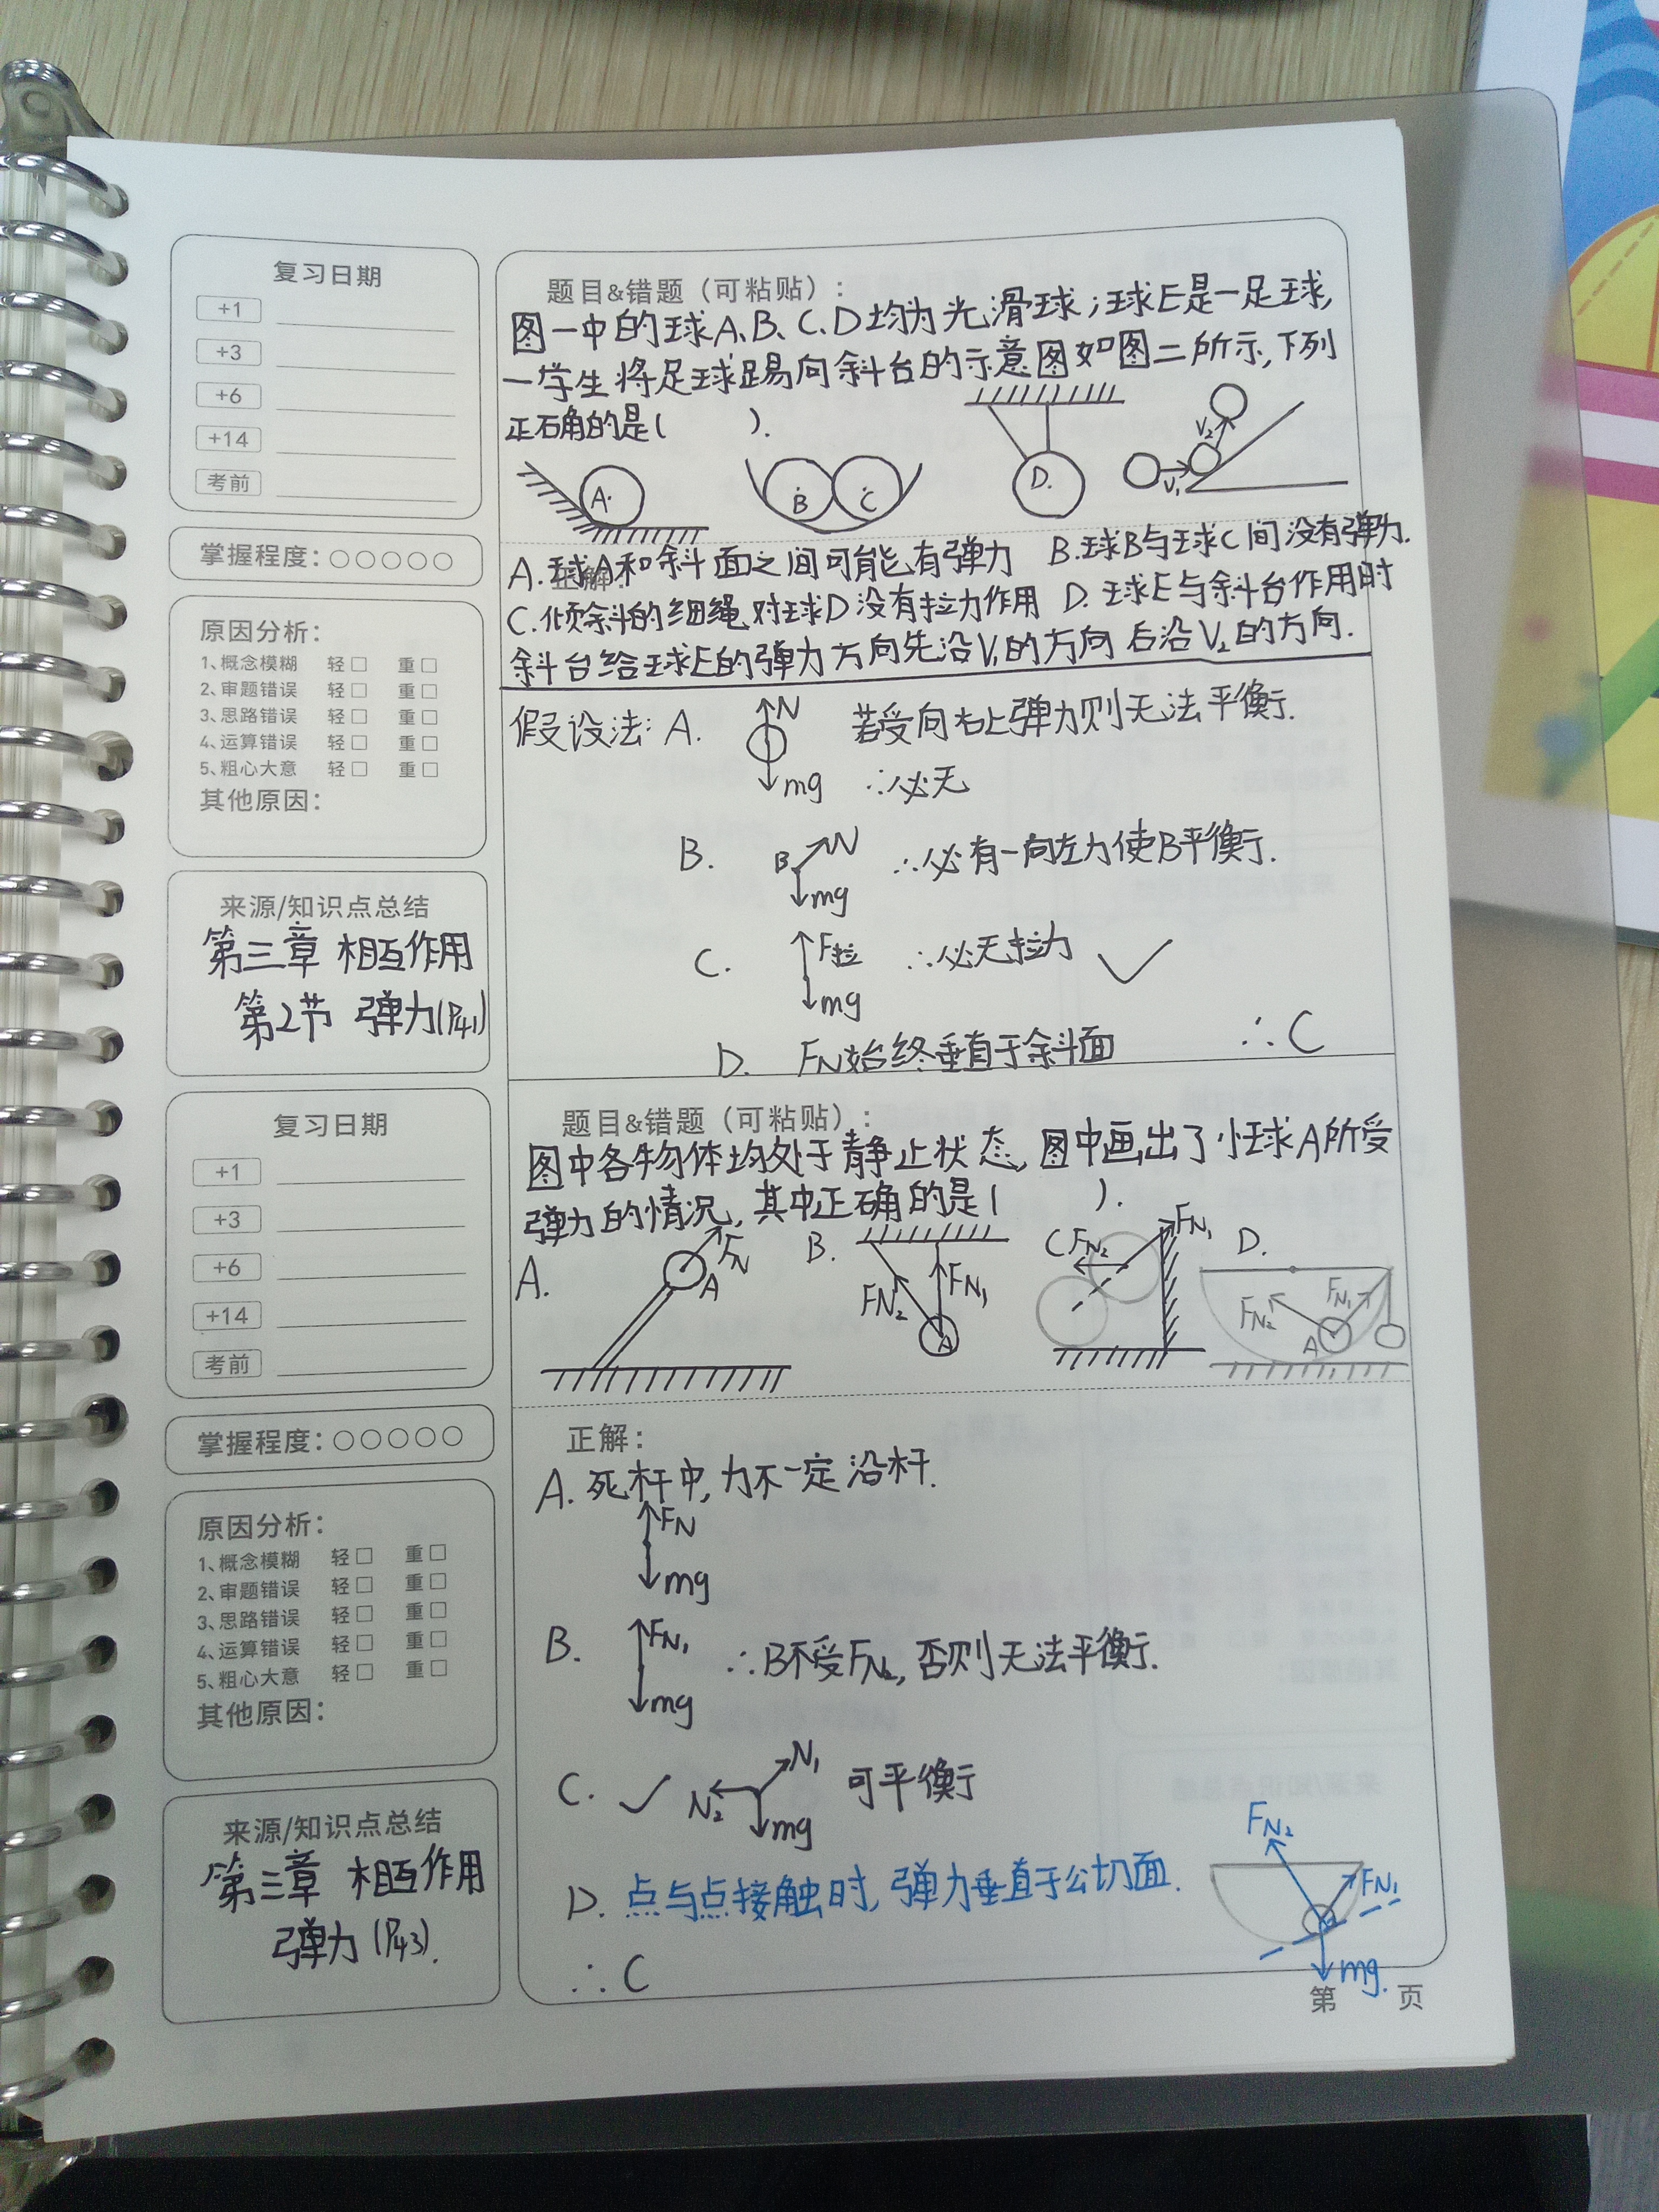 复习日期
+1
+3
+6
+14
考前
掌握程度：○○○○○
原因分析：
1、概念模糊 轻□ 重□
2、审题错误 轻□ 重□
3、思路错误 轻□ 重□
4、运算错误 轻□ 重□
5、粗心大意 轻□ 重□
其他原因：
来源/知识点总结
第三章 相互作用
第2节 弹力(P41)
题目&错题（可粘贴）：
图一中的球A、B、C、D均为光滑球；球E是一足球，
一学生将足球踢向斜台的示意图如图二所示，下列
正确的是( ).
A.
B
C
D.
V₁
V₂
正解：
A.球A和斜面之间可能有弹力 B.球B与球C间没有弹力.
C.倾斜的细绳对球D没有拉力作用 D.球E与斜台作用时
斜台给球E的弹力方向先沿V₁的方向后沿V₂的方向.
假设法：A. N mg 若受向右上弹力则无法平衡.
∴必无
B. B N mg ∴必有一向左力使B平衡.
C. F拉 mg ∴必无拉力 ✓
D. FN始终垂直于斜面 ∴C
复习日期
+1
+3
+6
+14
考前
掌握程度：○○○○○
原因分析：
1、概念模糊 轻□ 重□
2、审题错误 轻□ 重□
3、思路错误 轻□ 重□
4、运算错误 轻□ 重□
5、粗心大意 轻□ 重□
其他原因：
来源/知识点总结
第三章 相互作用
弹力(P43).
题目&错题（可粘贴）：
图中各物体均处于静止状态，图中画出了小球A所受
弹力的情况，其中正确的是( ).
A. FN A
B. FN₂ FN₁ A
C FN₂ FN₁
D. FN₂ FN₁ A
正解：
A. 死杆中，力不一定沿杆.
FN
mg
B. FN₁ mg ∴B不受FN₂，否则无法平衡.
C. ✓ N₂ N₁ mg 可平衡
D. 点与点接触时，弹力垂直于公切面.
FN₂
FN₁
mg.
∴C
第 页